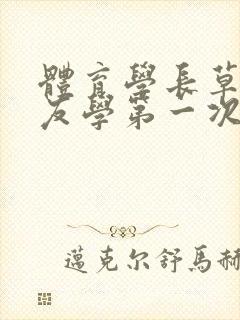 體育學長草
友學第一次
邁克尔舒馬赫